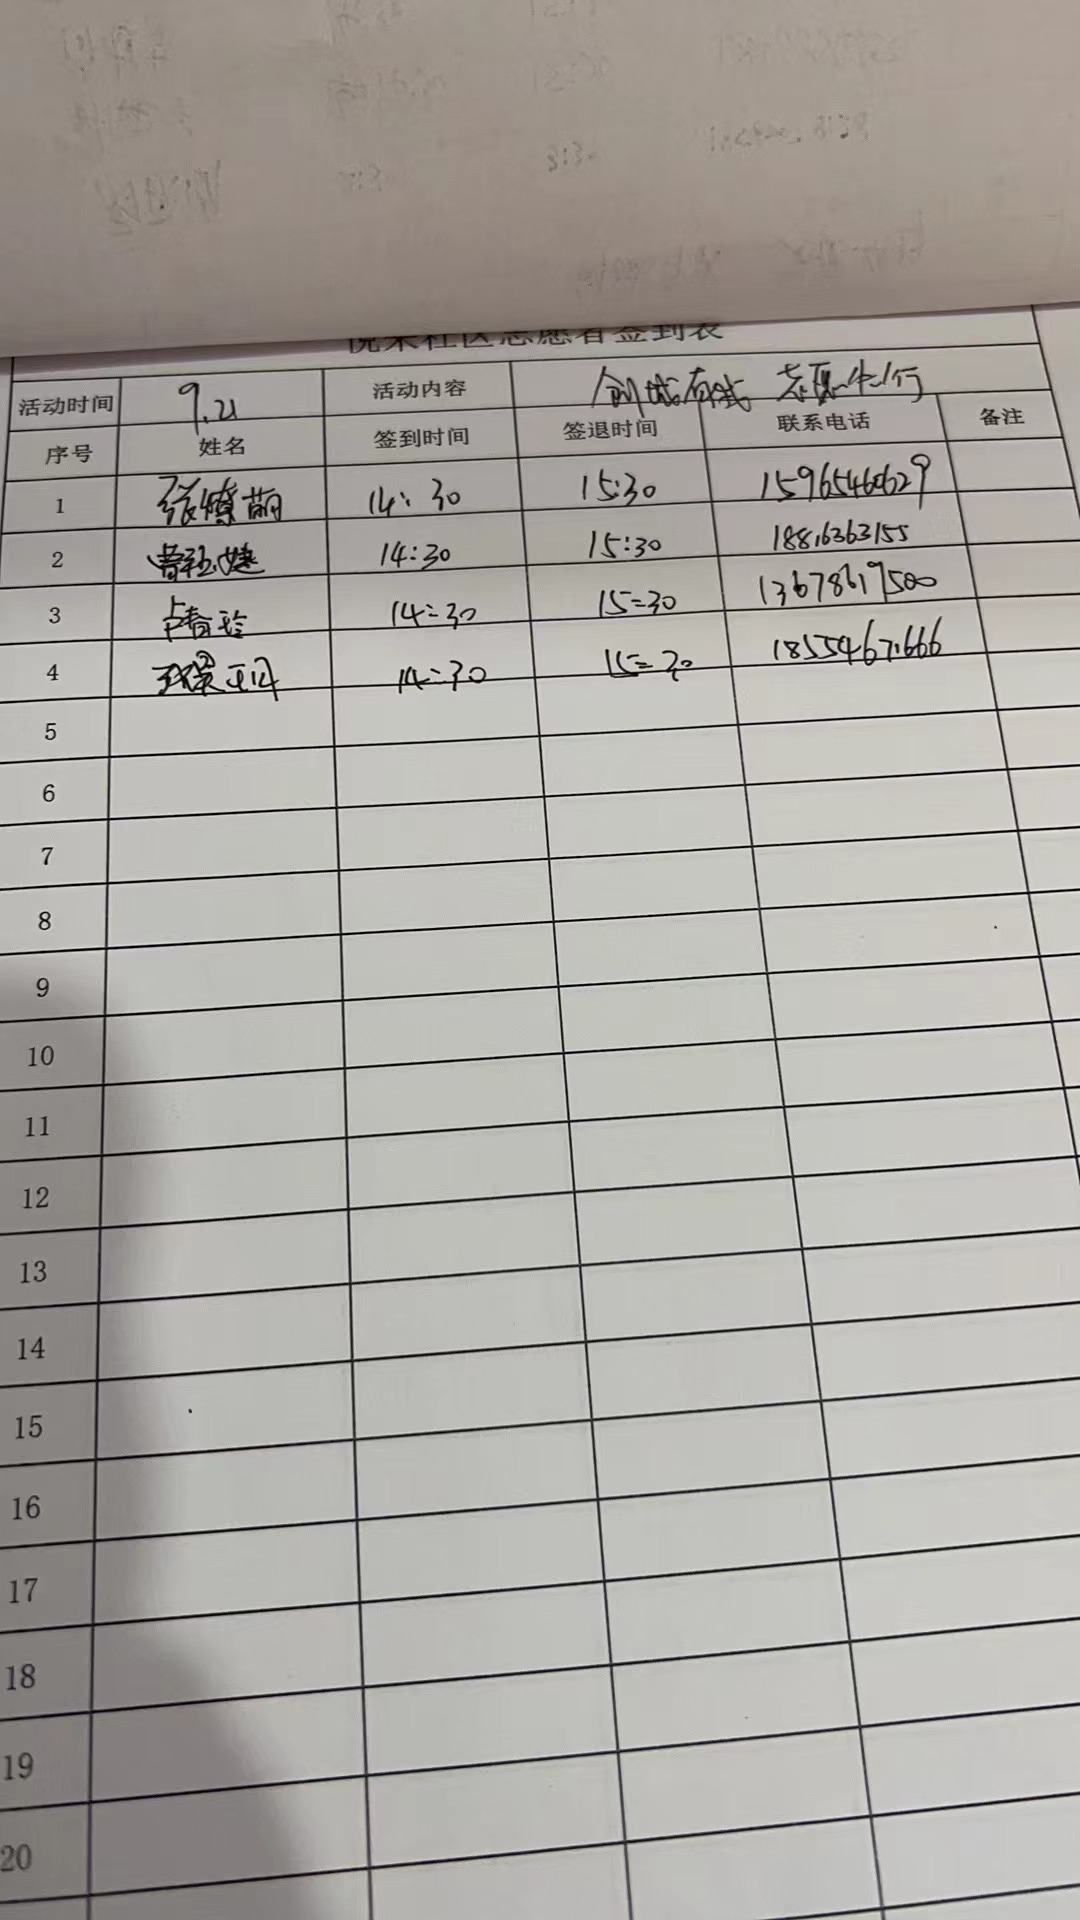 悦来社区志愿者签到表
活动时间 9.21 活动内容 创城有我 志愿先行
序号 姓名 签到时间 签退时间 联系电话 备注
1 张燎萌 14:30 15:30 15965460629
2 14:30 15:30 18816363155
3 卢春玲 14:30 15:30 13678617500
4 14:30 15:30 18554671666
5
6
7
8
9
10
11
12
13
14
15
16
17
18
19
20